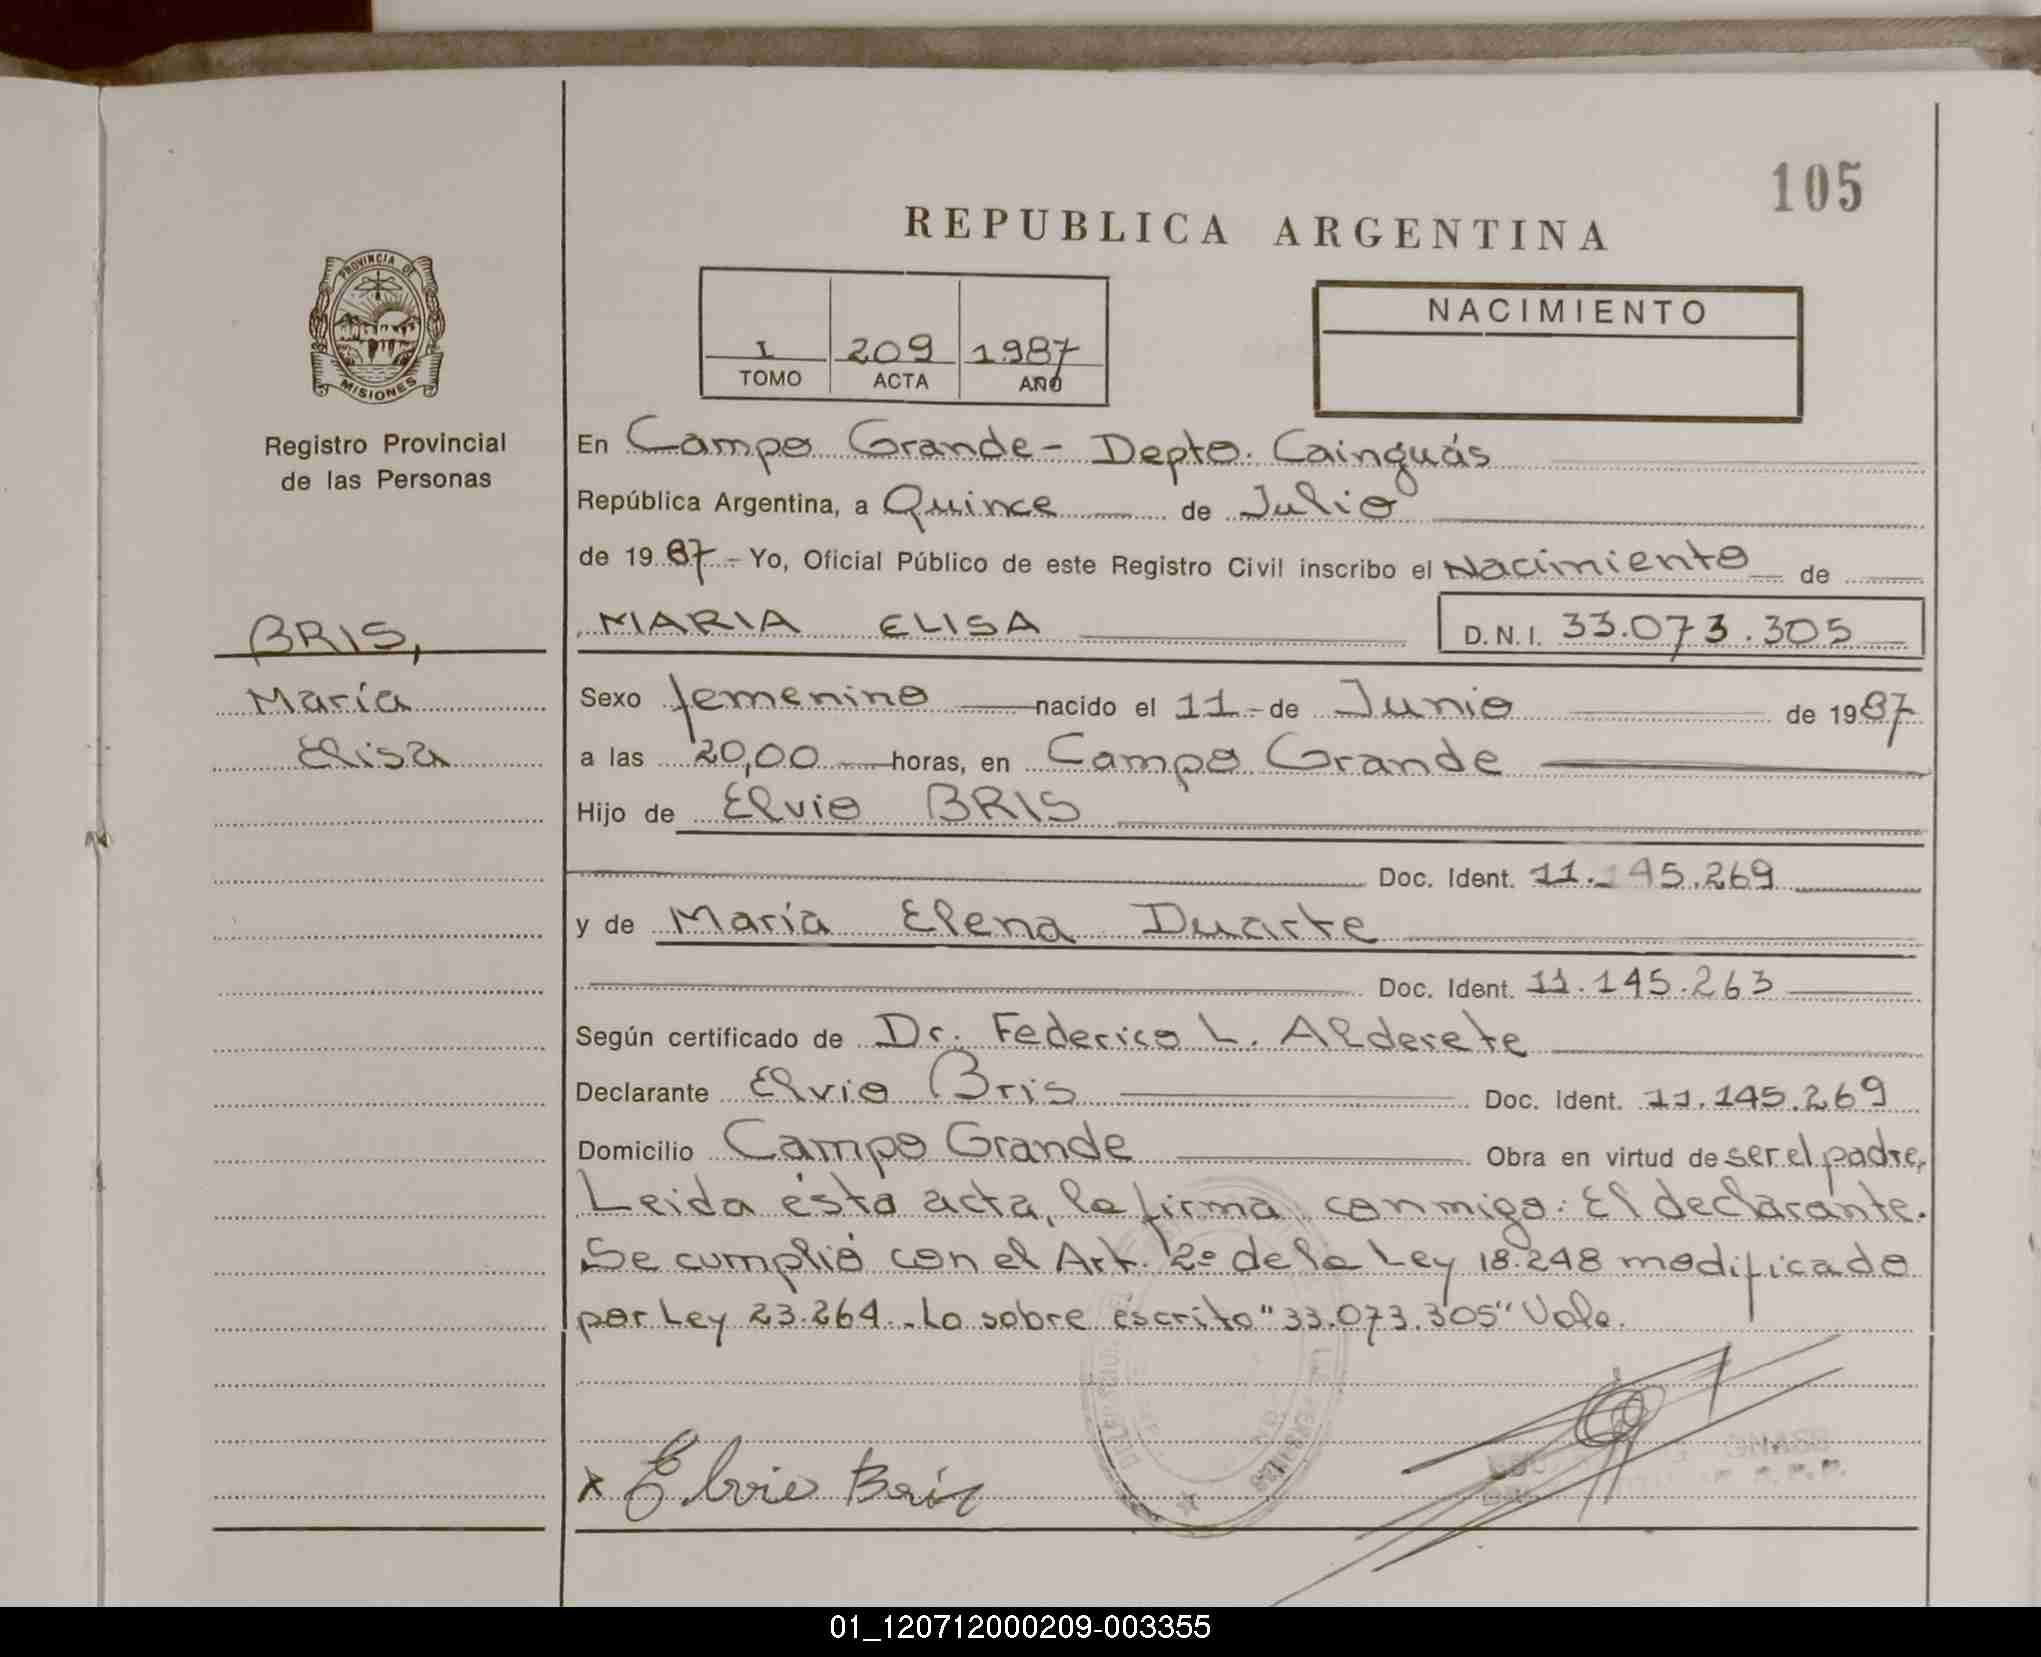 105
REPUBLICA ARGENTINA
PROVINCIA DE
MISIONES
Registro Provincial
de las Personas
I 209 1987
TOMO ACTA AÑO
NACIMIENTO
En Campo Grande - Depto. Cainguás
República Argentina, a Quince de Julio
de 1987 - Yo, Oficial Público de este Registro Civil inscribo el Nacimiento de
BRIS,
MARIA ELISA D.N.I. 33.073.305
María
Sexo femenino nacido el 11 - de Junio de 1987
Elisa
a las 20,00 horas, en Campo Grande
Hijo de Elvio BRIS
Doc. Ident. 11.145.269
y de María Elena Duarte
Doc. Ident. 11.145.263
Según certificado de Dr. Federico L. Alderete
Declarante Elvio Bris Doc. Ident. 11.145.269
Domicilio Campo Grande Obra en virtud de ser el padre,
Leida ésta acta, la firma conmigo: El declarante.
Se cumplió con el Art. 2º de la Ley 18.248 modificado
por Ley 23.264. - Lo sobre escrito "33.073.305" Vale.
x Elvio Bris
01_120712000209-003355